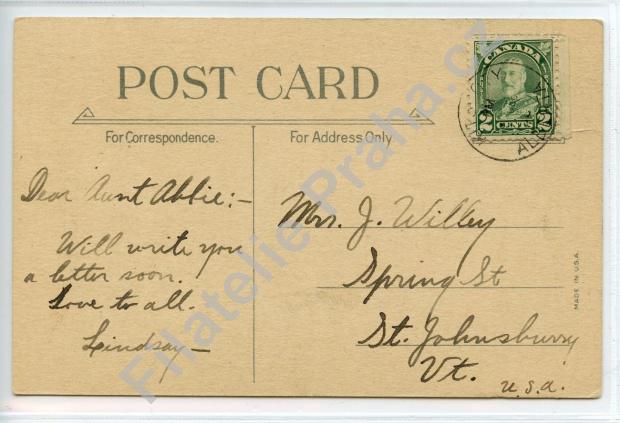 POST CARD
For Correspondence.
For Address Only.
CANADA
2 CENTS 2
Dear Aunt Abbie:-
Will write you
a letter soon.
Love to all.
Lindsay-
Mrs. J. Willey
Spring St
St. Johnsbury
Vt.
U.S.A.
MADE IN U.S.A.
Filatelie-Praha.cz